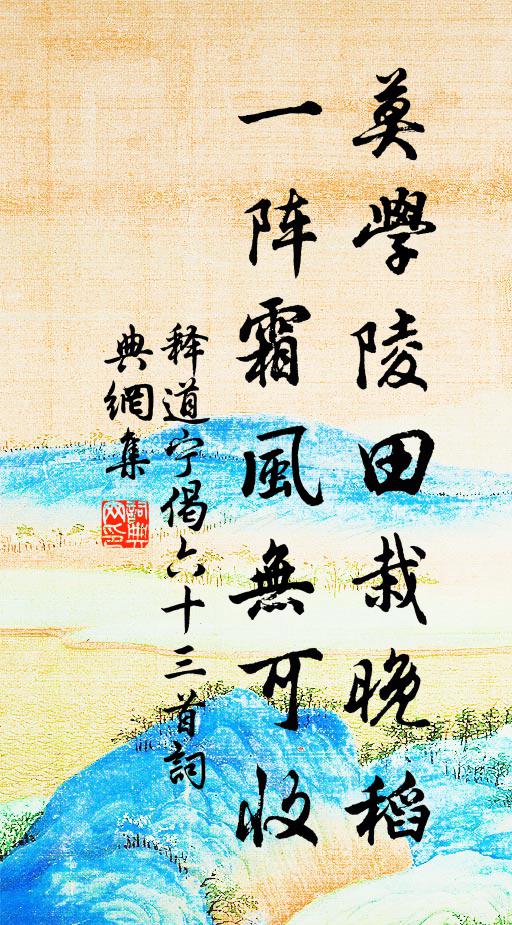 莫學陵田栽晚稻
一阵霜風無可收
释道宁偈六十三首詞
典網集
詞典网印